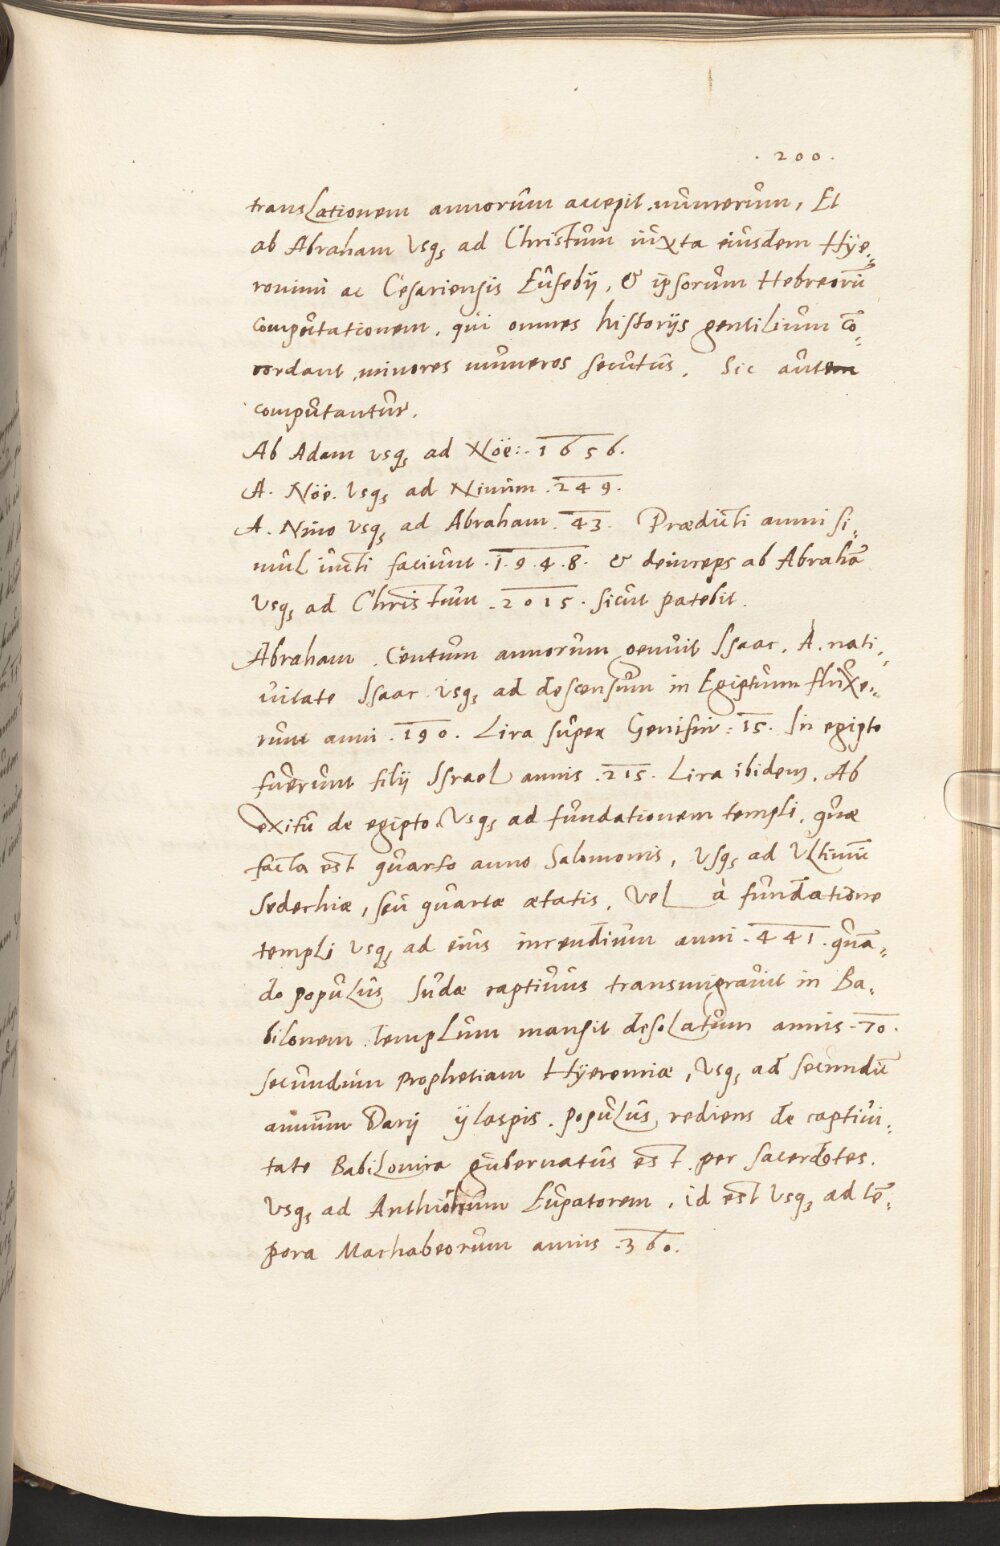 . 200 .
translationem annorum accepit numerum, Et
ab Abraham Vsq₃ ad Christum iuxta eiusdem Hÿe:,
ronimi ac Cesariensis Eusebij, & ipsorum Hebreorū
computationem, qui omnes historijs gentilium cō:
cordant, minores numeros secutus. Sic autem
computantur.
Ab Adam vsq₃ ad Nöe:. 1656.
A. Nöe. Vsq₃ ad Ninum .249.
A. Nino vsq₃ ad Abraham. 43. Prædicti anni si:,
mul iuncti faciunt .1.9.4.8. & deinceps ab Abrahā
Vsq₃ ad Christum .2015. sicut patebit.
Abraham . Centum annorum genuit Isaac. A. nati:,
uitate Isaac vsq₃ ad descensum in Egiptum fluxe:,
runt anni .190. Lira super Genesim: 15. In egipto
fuerunt filij Israel annis .215. Lira ibidem. Ab
exitu de egipto. Vsq₃ ad fundationem templi, quæ
facta est quarto anno Salomonis, Vsq₃ ad Vltimū
Sedechiæ, seu quartæ ætatis, Vel à fundatione
templi vsq₃ ad eius incendium anni .441. quā:,
do populus Iudæ captiuus transmigrauit in Ba:,
bilonem. Templum mansit desolatum annis .70.
secundum prophetiam Hÿeremiæ, Vsq₃ ad secundū
annum Darij ÿlaspis. populus rediens de captiui:,
tate Babilonica gubernatus est per sacerdotes.
Vsq₃ ad Anthiochum Eupatorem, id est Vsq₃ ad tē:,
pora Machabeorum annis .360.